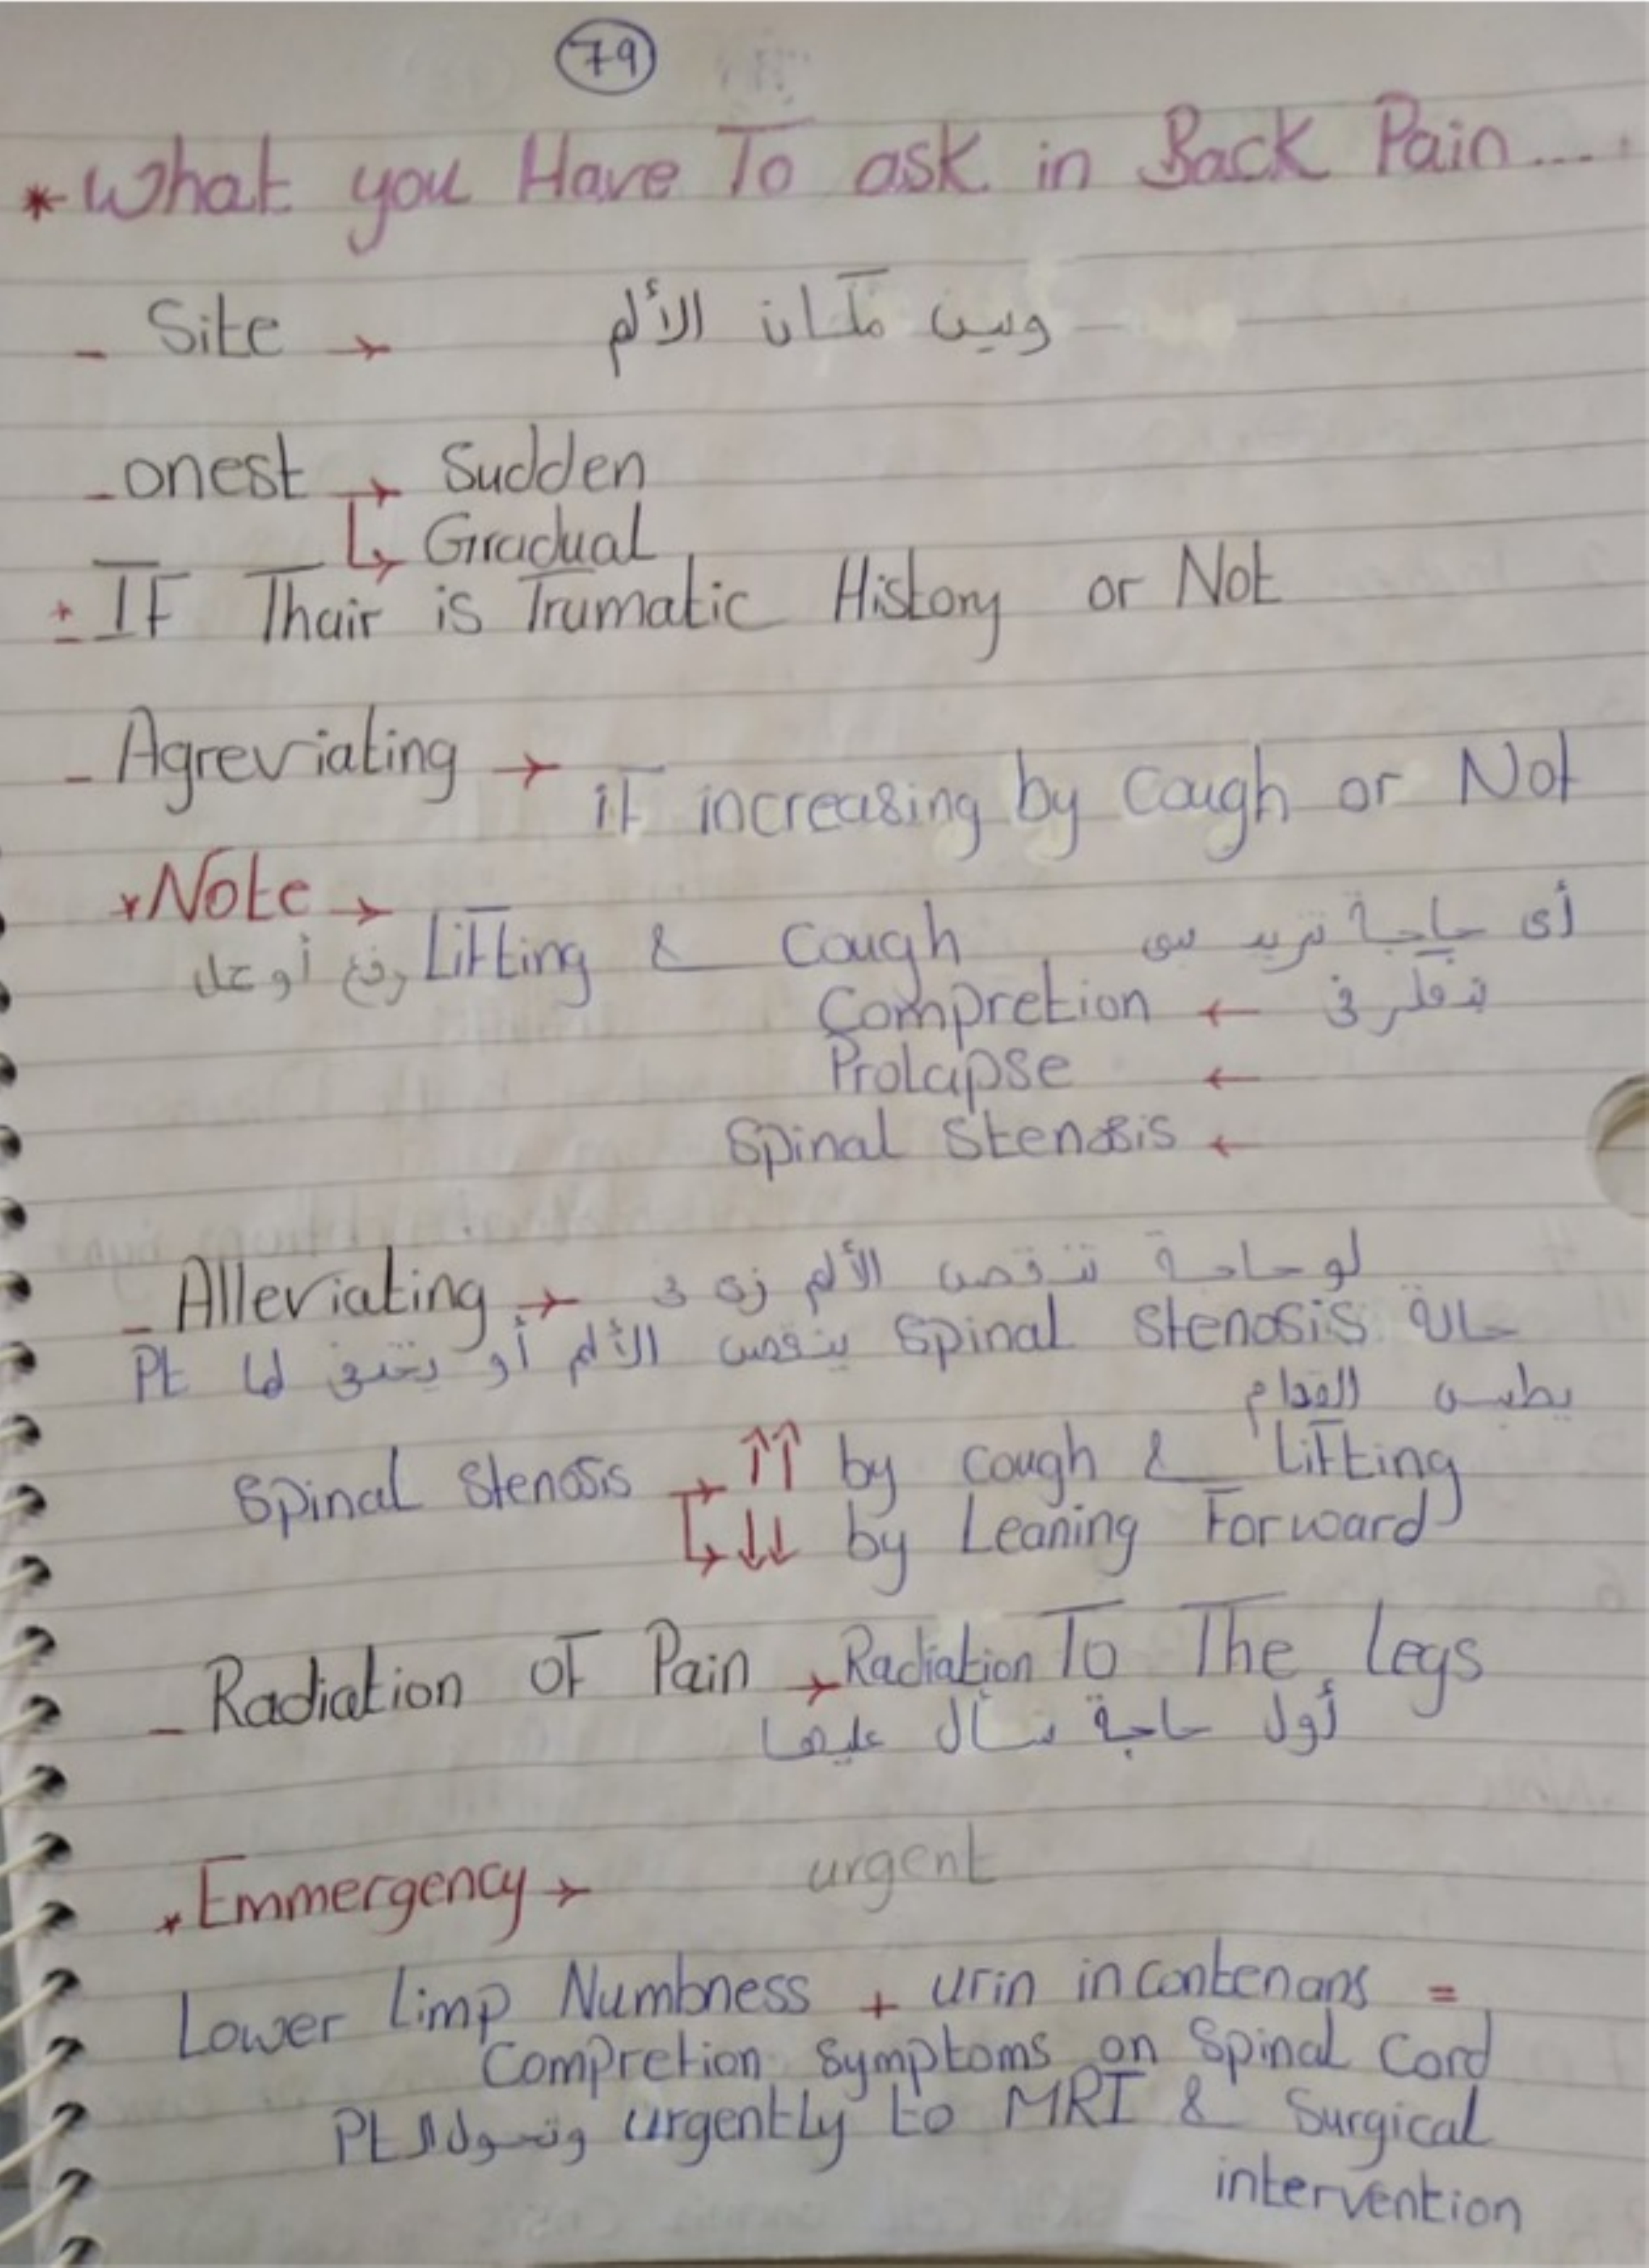 79
* What you Have To ask in Back Pain....
- Site → وين مكان الألم
- onest → Sudden
↳ Gradual
± IF Thair is Trumatic History or Not
- Agreviating → iF increasing by Cough or Not
* Note →
رفع أوعال Lifting & Cough أي حاجة تزيد
Compretion ← نفكر في
Prolapse ←
Spinal Stenosis ←
- Alleviating → لو حاجة تنقص الألم زي في
حالة Spinal Stenosis ينقص الألم أو يختفي لما Pt
يطبس القدام
Spinal Stenosis → ↑↑ by Cough & Lifting
↳ ↓↓ by Leaning Forward
- Radiation oF Pain → Radiation To The legs
أول حاجة نسأل عليها
* Emmergency → urgent
Lower Limp Numbness + urin incontenans =
Compretion symptoms on Spinal Cord
Pt ونحول ال urgently to MRI & Surgical
intervention